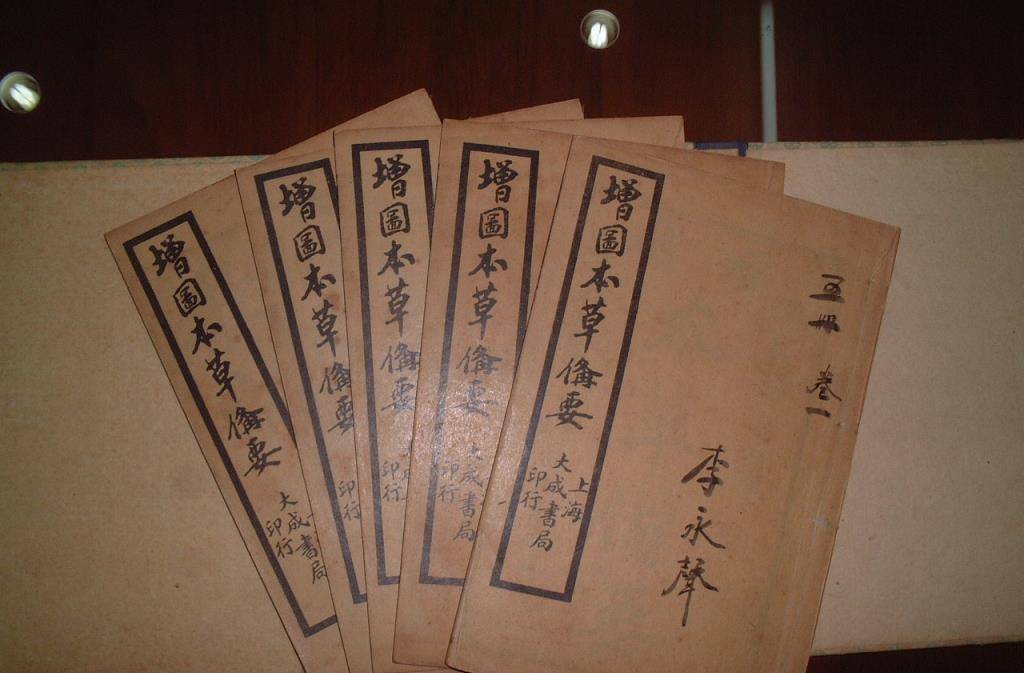 增圖本草備要
大成書局
印行
增圖本草備要
印行
增圖本草備要
印行
增圖本草備要
大成書局
印行
增圖本草備要
上海
大成書局
印行
五冊 卷一
李永聲